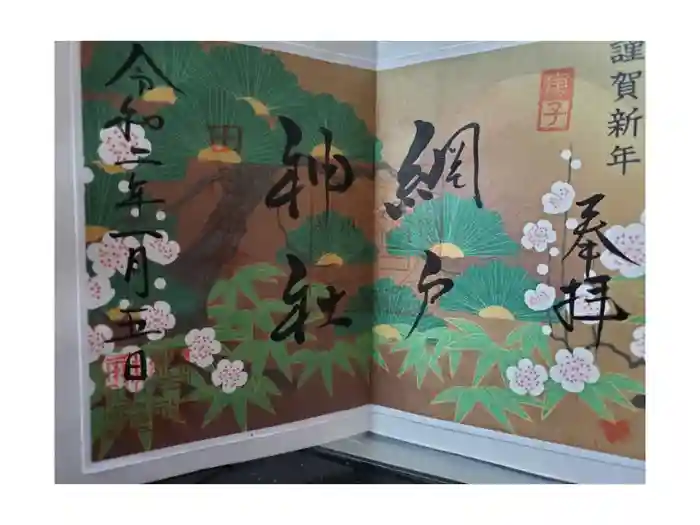 謹賀新年
庚子
奉拝
網戸
神社
令和二年一月五日